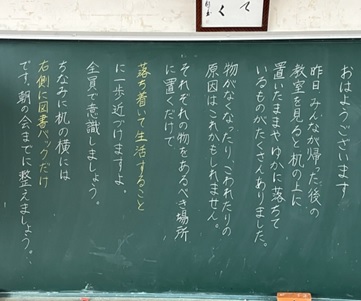 おはようございます
昨日 みんなが帰った後の
教室を見ると机の上に
置いたままやゆかに落ちて
いるものがたくさんありました。
物がなくなったり、こわれたりの
原因はこれかもしれません。
それぞれの物をあるべき場所
に置くだけで
落ち着いて生活すること
に一歩近づけますよ。
全員で意識しましょう。
ちなみに机の横には
右側に図書バックだけ
です。朝の会までに整えましょう。